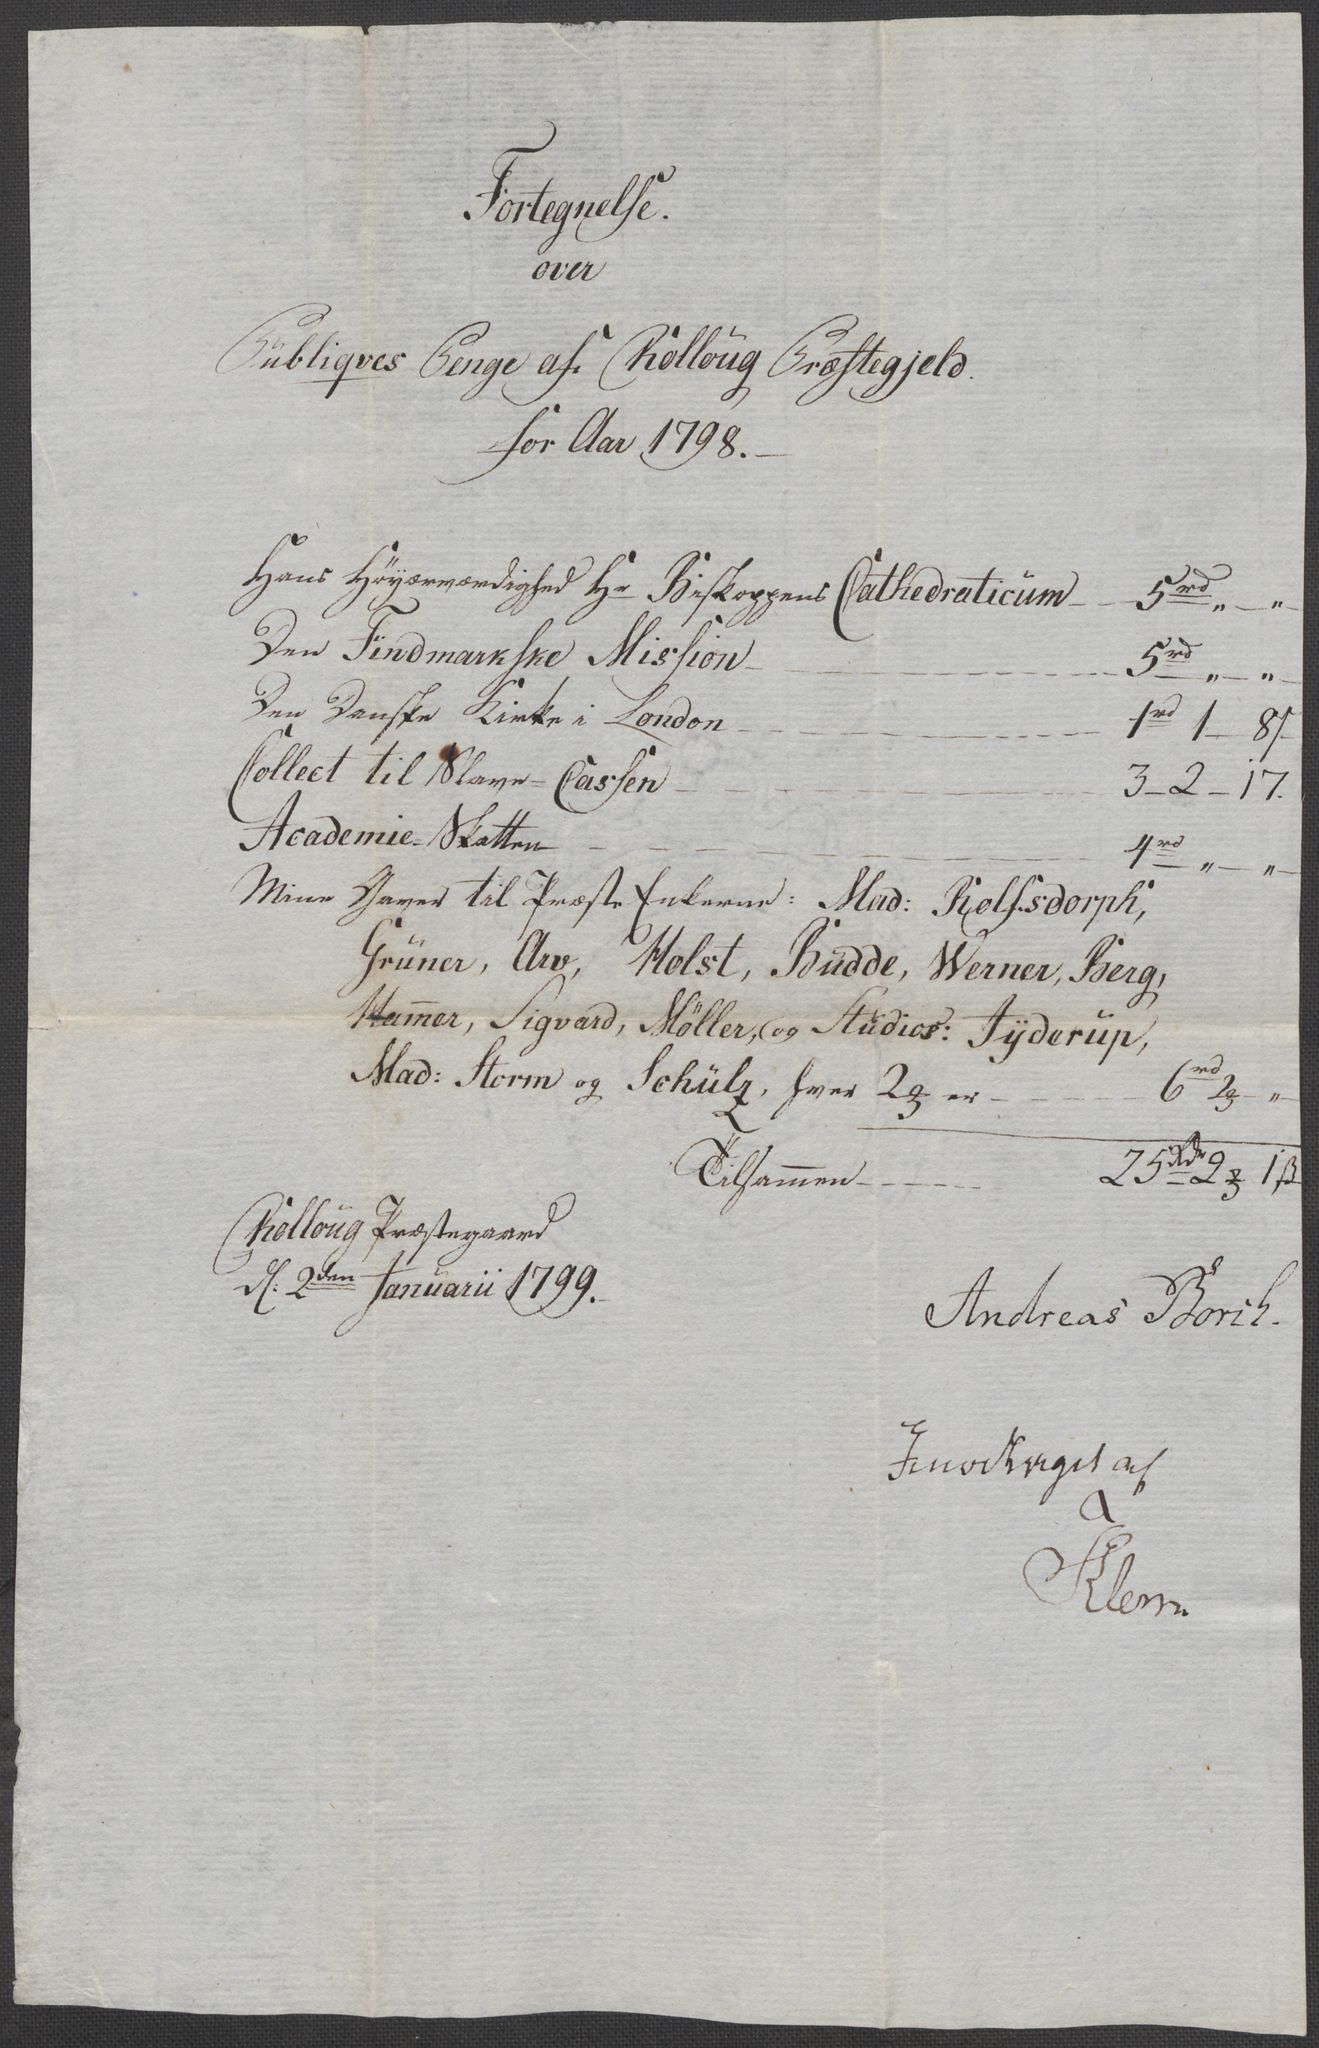 Fortegnelse.
over
Publiqves Penge af Rolloug Præstegjeld.
for Aar 1798.
Hans Höyærværdighed Hr Biskoppens Cathedraticum 5 rd „ „
Den Findmarkske Mission 5 rd „ „
Den Danske Kirke i London 1 rd 1 8 s
Collect til Slave-Cassen 3 - 2 - 17.
Academie-Skatten 4 rd „ „
Mine Gaver til Præste Enkerne: Mad: Rolfsdorph,
Grüner, Arv, Holst, Budde, Werner, Berg,
Ham̄er, Sigvard, Möller, og Studios: Tÿderup,
Mad: Storm og Schülz, hver 2 ꝣ er 6 rd 2 ꝣ „
Tilsam̄en 25 Rdr 2 ꝣ 1 ß
Rolloug Præstegaard
d. 2den Januarii 1799.
Andreas Borch.
af
Klem